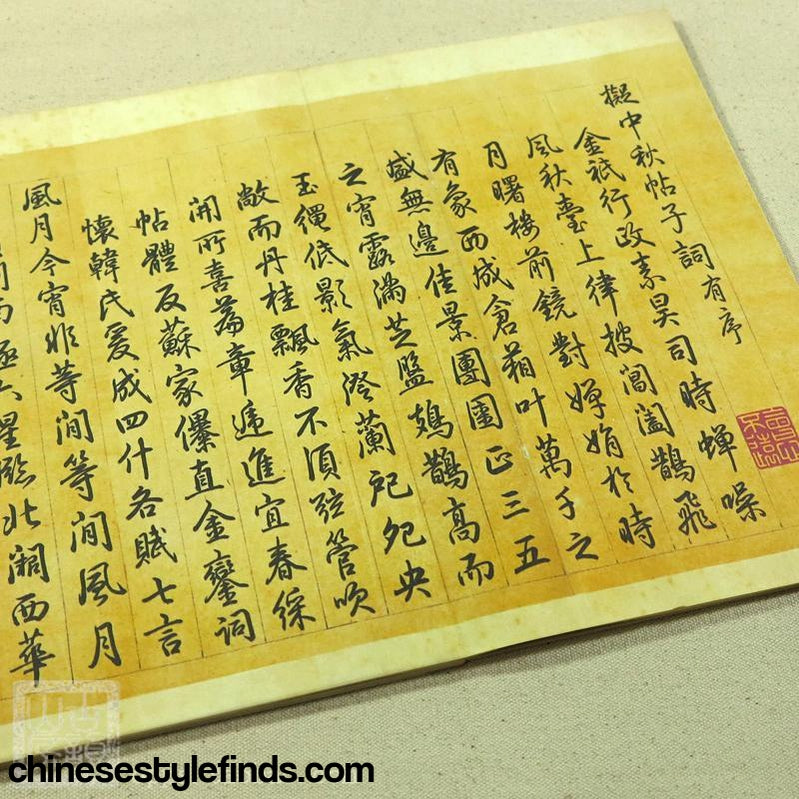 擬中秋帖子詞有序
金祇行政素昊司時蟬噪
風秋臺上律披閶闔鵲飛
月曙樓前鏡對嬋娟於時
有象西成倉箱叶萬千之
盛無邊佳景團圞正三五
之宵露滿芝盤鳷鵲高而
玉繩低影氣澄蘭戺夗央
敞而丹桂飄香不須弦管吹
開所喜篇章遞進宜春綵
帖體反蘇家儤直金鑾詞
懷韓氏爰成四什各賦七言
風月今宵非等閒等閒風月
六星臨北闕西華
chinesestylefinds.com